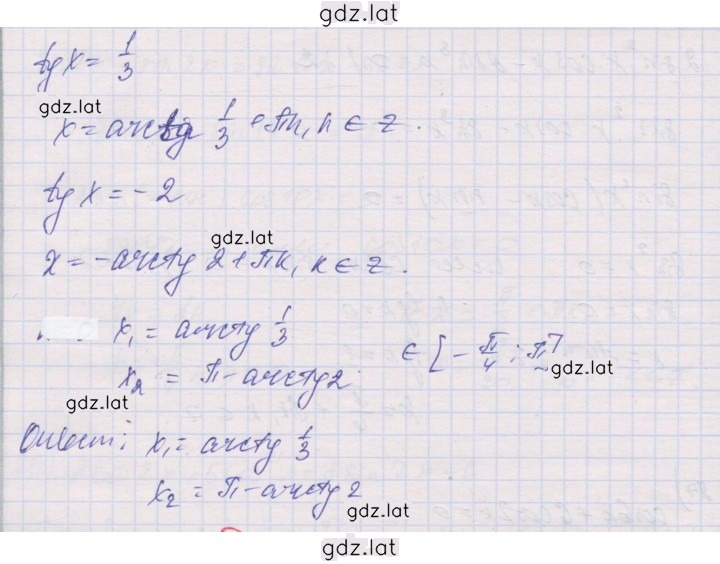 gdz.lat
tg x = 1/3
gdz.lat
x = arctg 1/3 + πn, n ∈ z.
tg x = -2
gdz.lat
x = -arctg 2 + πk, k ∈ z.
x₁ = arctg 1/3
x₂ = π - arctg 2
∈ [-π/4; π]
gdz.lat
gdz.lat
Ответ: x₁ = arctg 1/3
x₂ = π - arctg 2
gdz.lat
gdz.lat